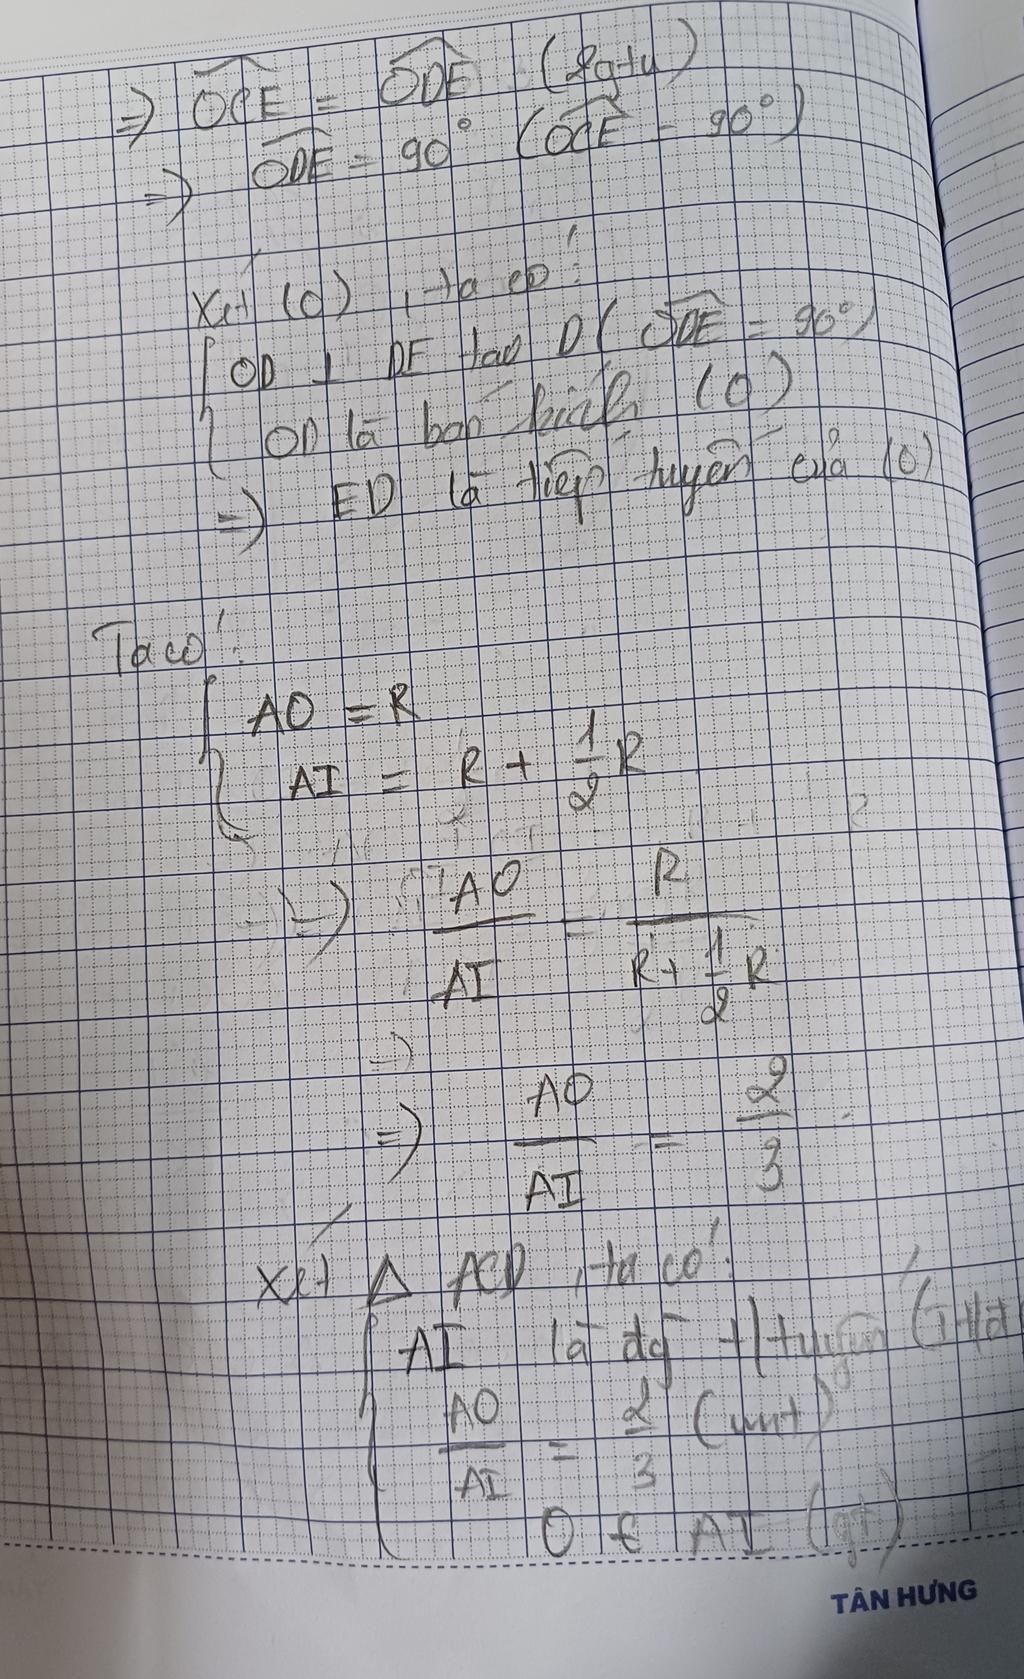 ⇒ OCE = ODE (2gtu)
⇒ ODE = 90° (OCE = 90°)
Xét (O), ta có:
OD ⊥ DE tại D (ODE = 90°)
OD là bán kính (O)
⇒ ED là tiếp tuyến của (O)
Ta có:
AO = R
AI = R + 1/2 R
⇒ AO/AI = R/(R + 1/2 R)
⇒
⇒ AO/AI = 2/3
Xét Δ ACD, ta có:
AI là đg t/tuyến
AO/AI = 2/3 (cmt)
O ∈ AI (gt)
TÂN HƯNG